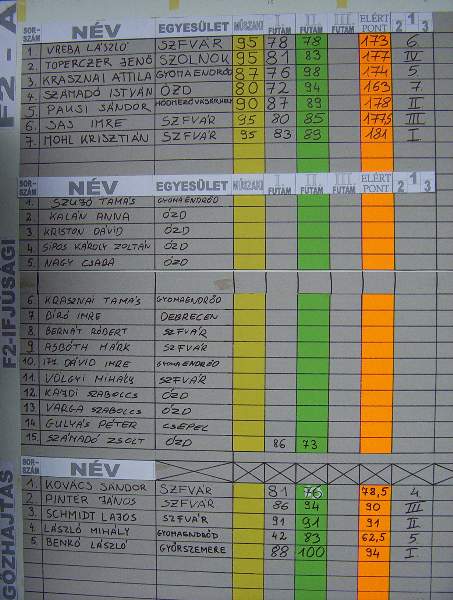 F2-A
SOR-SZÁM NÉV EGYESÜLET MŰSZAKI I. FUTAM II. FUTAM III. FUTAM ELÉRT PONT 1 2 3
1 VREBA LÁSZLÓ SZFVÁR 95 78 78 173 6
2. TOPERCZER JENŐ SZOLNOK 95 81 83 177 IV
3. KRASZNAI ATTILA GYOMAENDRŐD 87 76 98 174 5
4. SZÁMADÓ ISTVÁN ÓZD 80 72 94 163 7.
5. PAUSI SÁNDOR HÓDMEZŐVÁSÁRHELY 90 87 89 178 II
6. SAS IMRE SZFVÁR 95 80 85 177,5 III
7. MOHL KRISZTIÁN SZFVÁR 95 83 89 181 I
F2-IFJUSÁGI
SOR-SZÁM NÉV EGYESÜLET MŰSZAKI I. FUTAM II. FUTAM III. FUTAM ELÉRT PONT 1 2 3
1. SZUJÓ TAMÁS GYOMAENDRŐD
2 KALÁN ANNA ÓZD
3 KRISTON DÁVID ÓZD
4 SIPOS KÁROLY ZOLTÁN ÓZD
5 NAGY CSABA ÓZD
6 KRASZNAI TAMÁS GYOMAENDRŐD
7 BIRÓ IMRE DEBRECEN
8 BERNÁT RÓBERT SZFVÁR
9 ASBÓTH MÁRK SZFVÁR
10. DÁVID IMRE GYOMAENDRŐD
11 VÖLGYI MIHÁLY SZFVÁR
12 KAPDI SZABOLCS ÓZD
13 VARGA SZABOLCS ÓZD
14 GULYÁS PÉTER CSEPEL
15 SZÁMADÓ ZSOLT ÓZD 86 73
GŐZHAJTÁS
SOR-SZÁM NÉV
1. KOVÁCS SÁNDOR SZFVÁR 81 76 78,5 4
2 PINTÉR JÁNOS SZFVÁR 86 94 90 III
3. SCHMIDT LAJOS SZFVÁR 91 91 91 II
4 LÁSZLÓ MIHÁLY GYOMAENDRŐD 42 83 62,5 5
5 BENKŐ LÁSZLÓ GYŐRSZEMERE 88 100 94 I